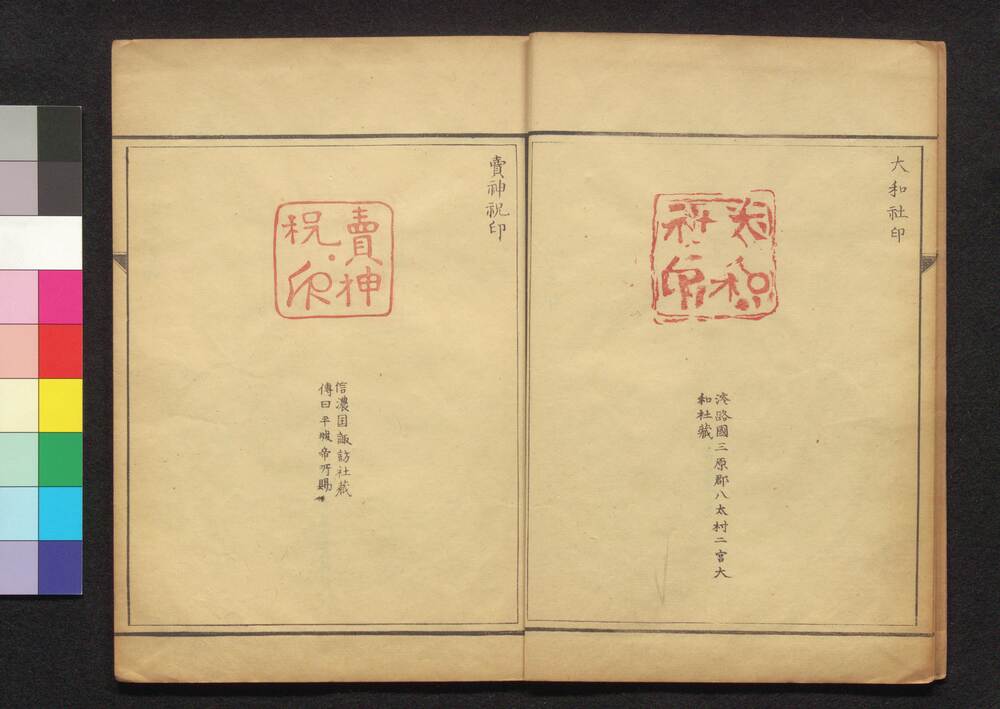 大和社印
大和
社印
淡路國三原郡八太村二宮大
和社藏
賣神祝印
賣神
祝印
信濃国諏訪社藏
傳曰平城帝所賜